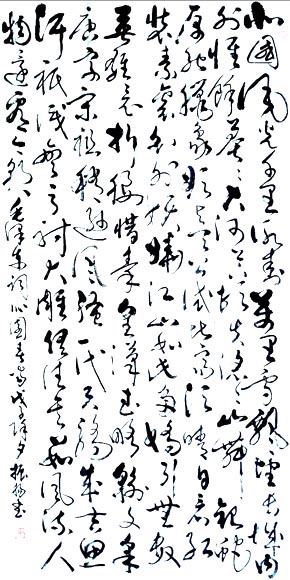 北國风光千里冰封萬里雪飘望長城内
外惟馀莽莽大河上下顿失滔滔山舞银蛇
原驰蜡象欲与天公试比高须晴日看红
装素裹分外妖娆江山如此多娇引無数
英雄竞折腰惜秦皇漢武略输文采
唐宗宋祖稍逊风骚一代天骄成吉思
汗祇识弯弓射大雕俱往矣数风流人
物还看今朝 毛泽东词沁園春雪 夕 振 書